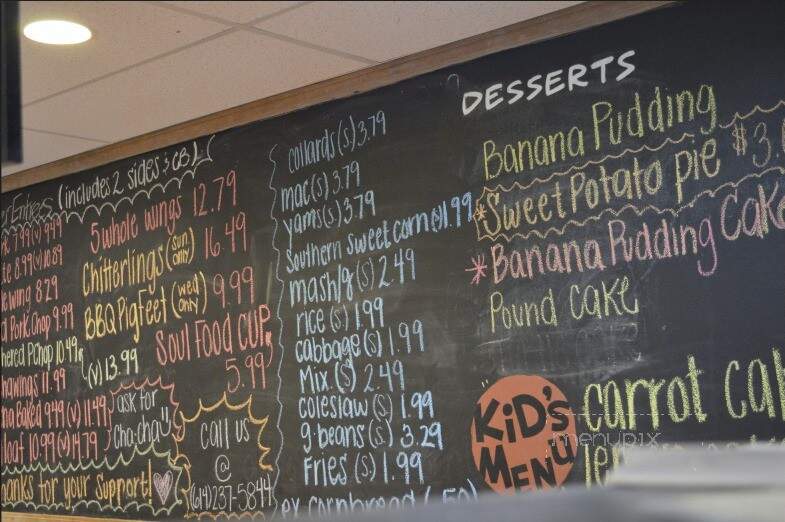 Entrees (includes 2 sides & CB)
7.99 (w) 9.49
8.99 (w) 10.89
wing 8.29
Pork Chop 9.99
PChop 10.49
(w) 13.99
wings 11.99
Baked 9.49 (w) 11.49
loaf 10.99 (w) 14.79
ask for
cha-cha
thanks for your support!
5 whole wings 12.79
Chitterlings (sun. only) 16.49
BBQ Pig Feet (wed only) 9.99
SOUL FOOD CUP
5.99
call us
@
(614) 237-5844
collards (s) 3.79
mac (s) 3.79
yams (s) 3.79
Southern sweet corn (s) 1.99
mash/g (s) 2.49
rice (s) 1.99
cabbage (s) 1.99
Mix (s) 2.49
coleslaw (s) 1.99
g-beans (s) 3.29
Fries (s) 1.99
ex cornbread (.50)
DESSERTS
Banana Pudding
*Sweet Potato pie $3.
*Banana Pudding Cake
Pound Cake
KiD's
MENU
carrot cak
menupix